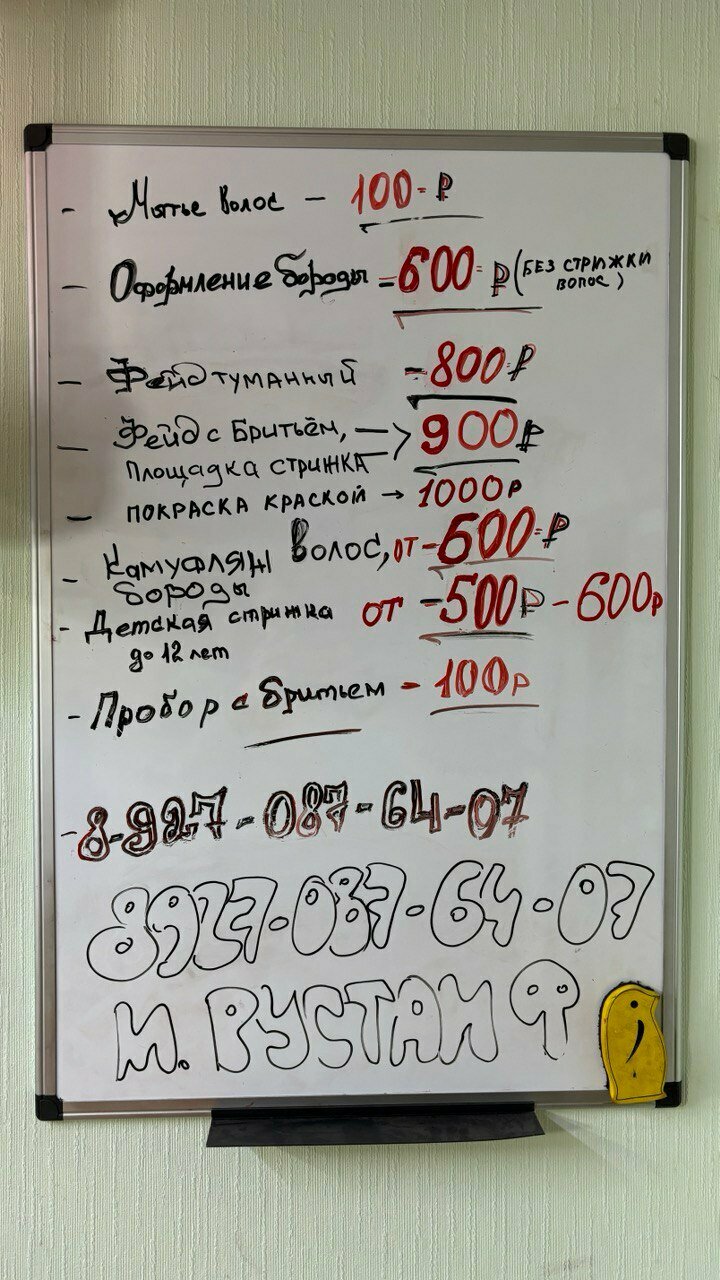 - Мытье волос - 100=₽
- Оформление бороды = 600=₽ (БЕЗ СТРИЖКИ
ВОЛОС)
- Фейд туманный - 800=₽
- Фейд с Бритьём, → 900₽
Площадка стрижка
- ПОКРАСКА КРАСКОЙ → 1000р
- Камуфляж Волос, от - 600=₽
бороды
- Детская стрижка от - 500₽ - 600р
до 12 лет
- Пробор с бритьем - 100р
- 8-927-087-64-07
8927-087-64-07
И. РУСТАМ Ф